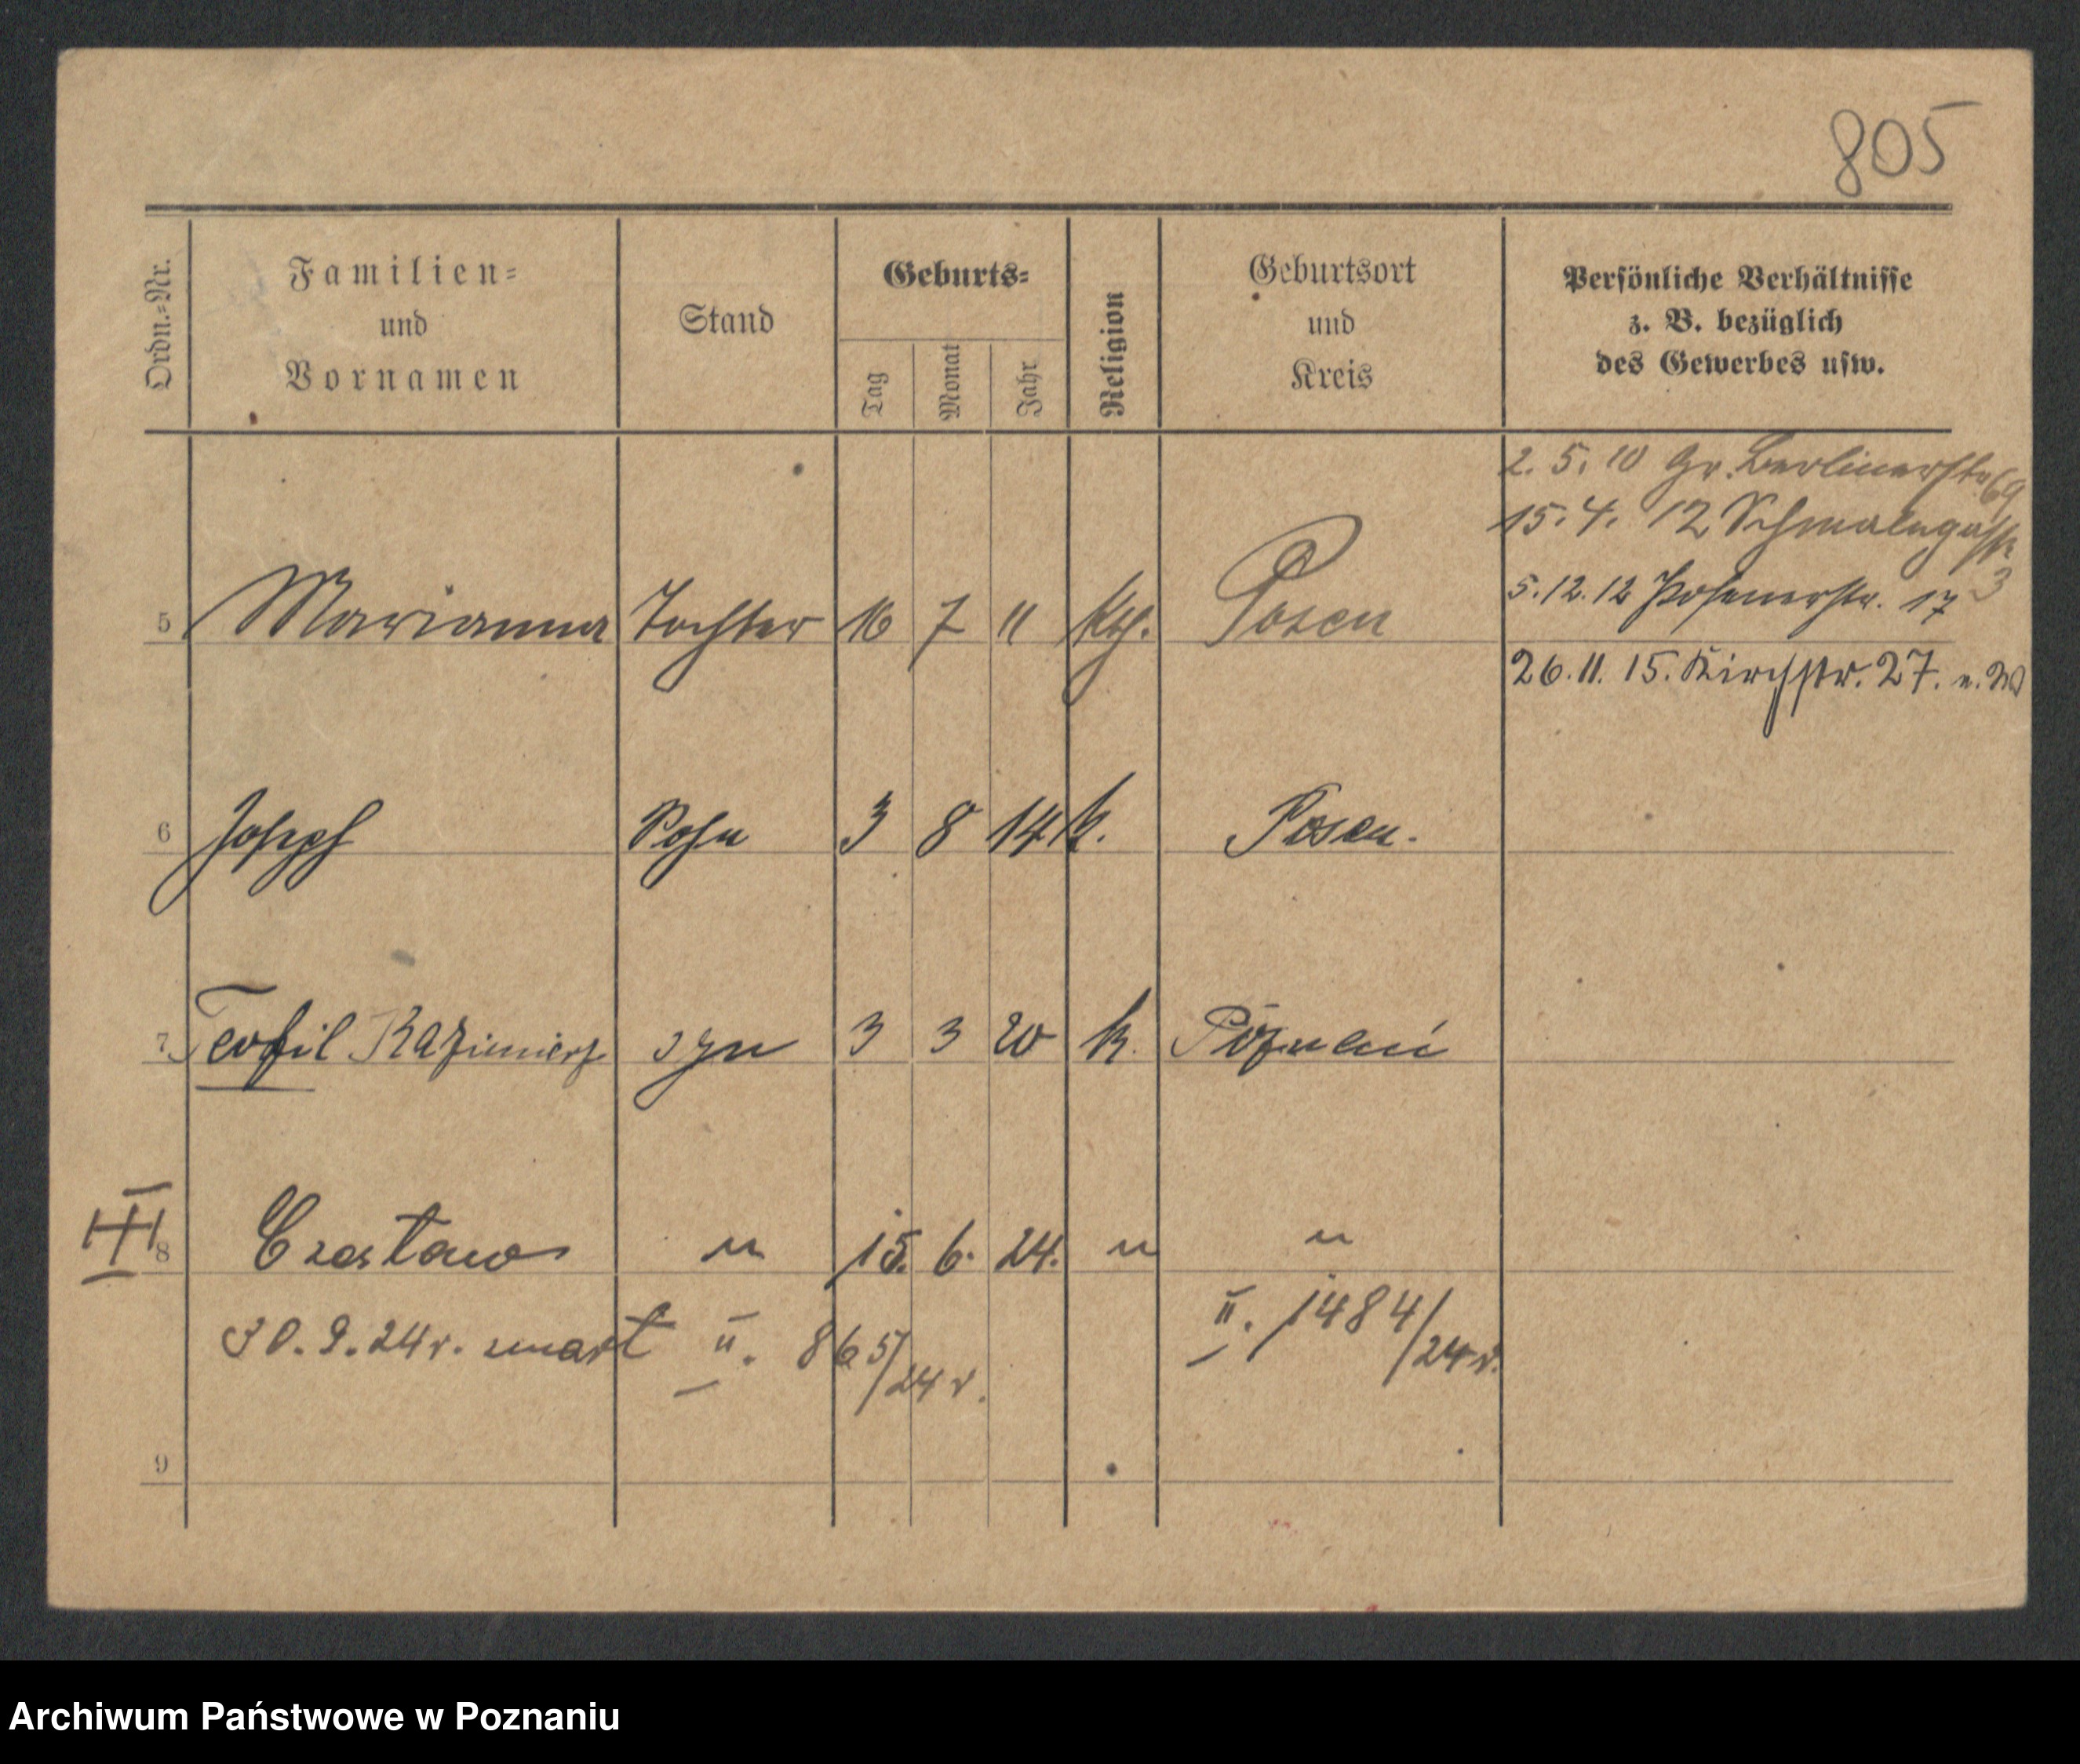 805
Ordn.-Nr.
Familien-
und
Vornamen
Stand
Geburts-
Tag
Monat
Jahr
Religion
Geburtsort
und
Kreis
Persönliche Verhältnisse
z. B. bezüglich
des Gewerbes usw.
2. 5. 10 Gr. Berlinerstr 69
15. 4. 12 Schmalegasse 3
5. 12. 12 Posenerstr. 17
5 Marianna Tochter 16 7 11 Kth. Posen
26. 11. 15. Kirchstr. 27. u. W
6 Joseph Sohn 3 8 14 k. Posen.
7 Teofil Kazimierz syn 3 3 20 k. Poznań
8 Czesław " 15. 6. 24. " "
30. 9. 24 r. zmarł II. 865/24 r.
II. 1484/24 r.
9
Archiwum Państwowe w Poznaniu